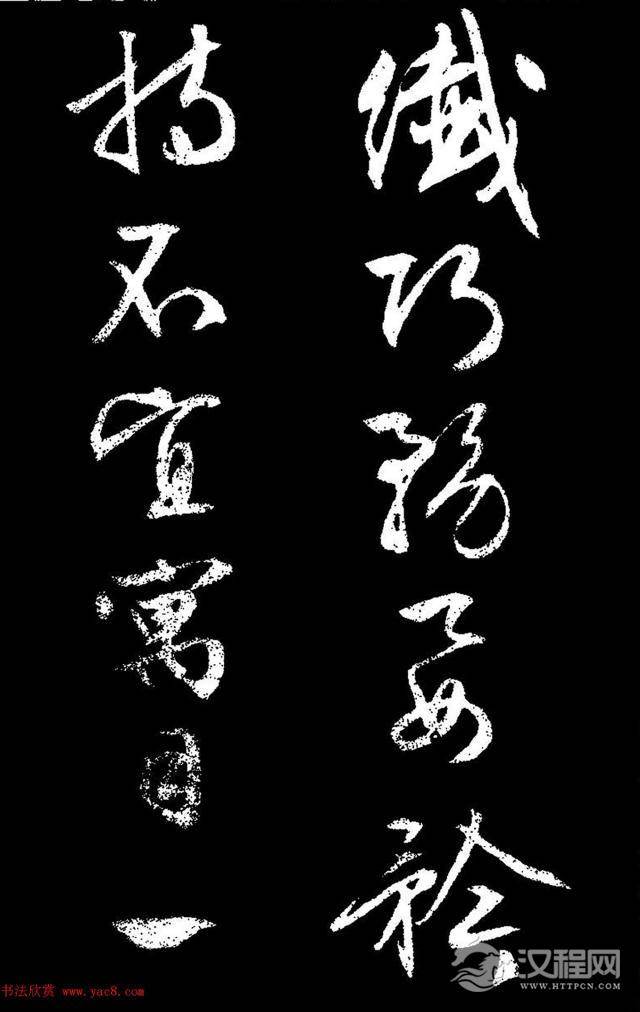 纖巧務要矜
持不宜寓目一
书法欣赏 www.yac8.com
汉程网
WWW.HTTPCN.COM